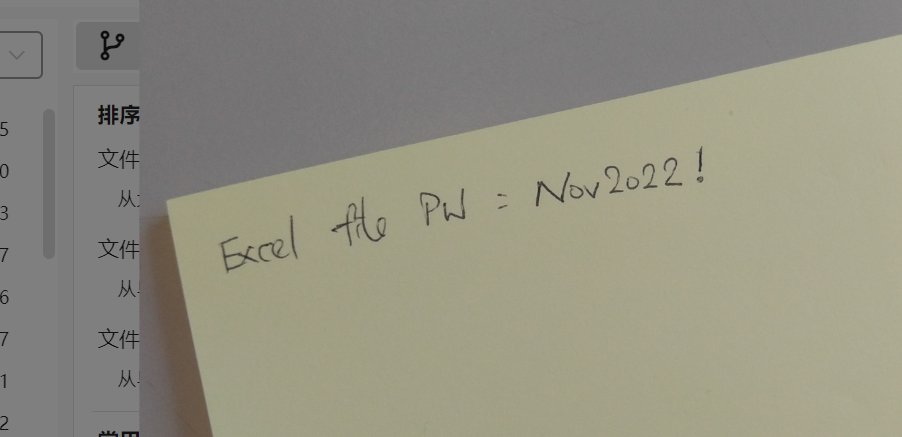 5
0
3
7
6
7
1
2
排序
文件
从
文件
从
文件
从
Excel file PW = Nov2022!